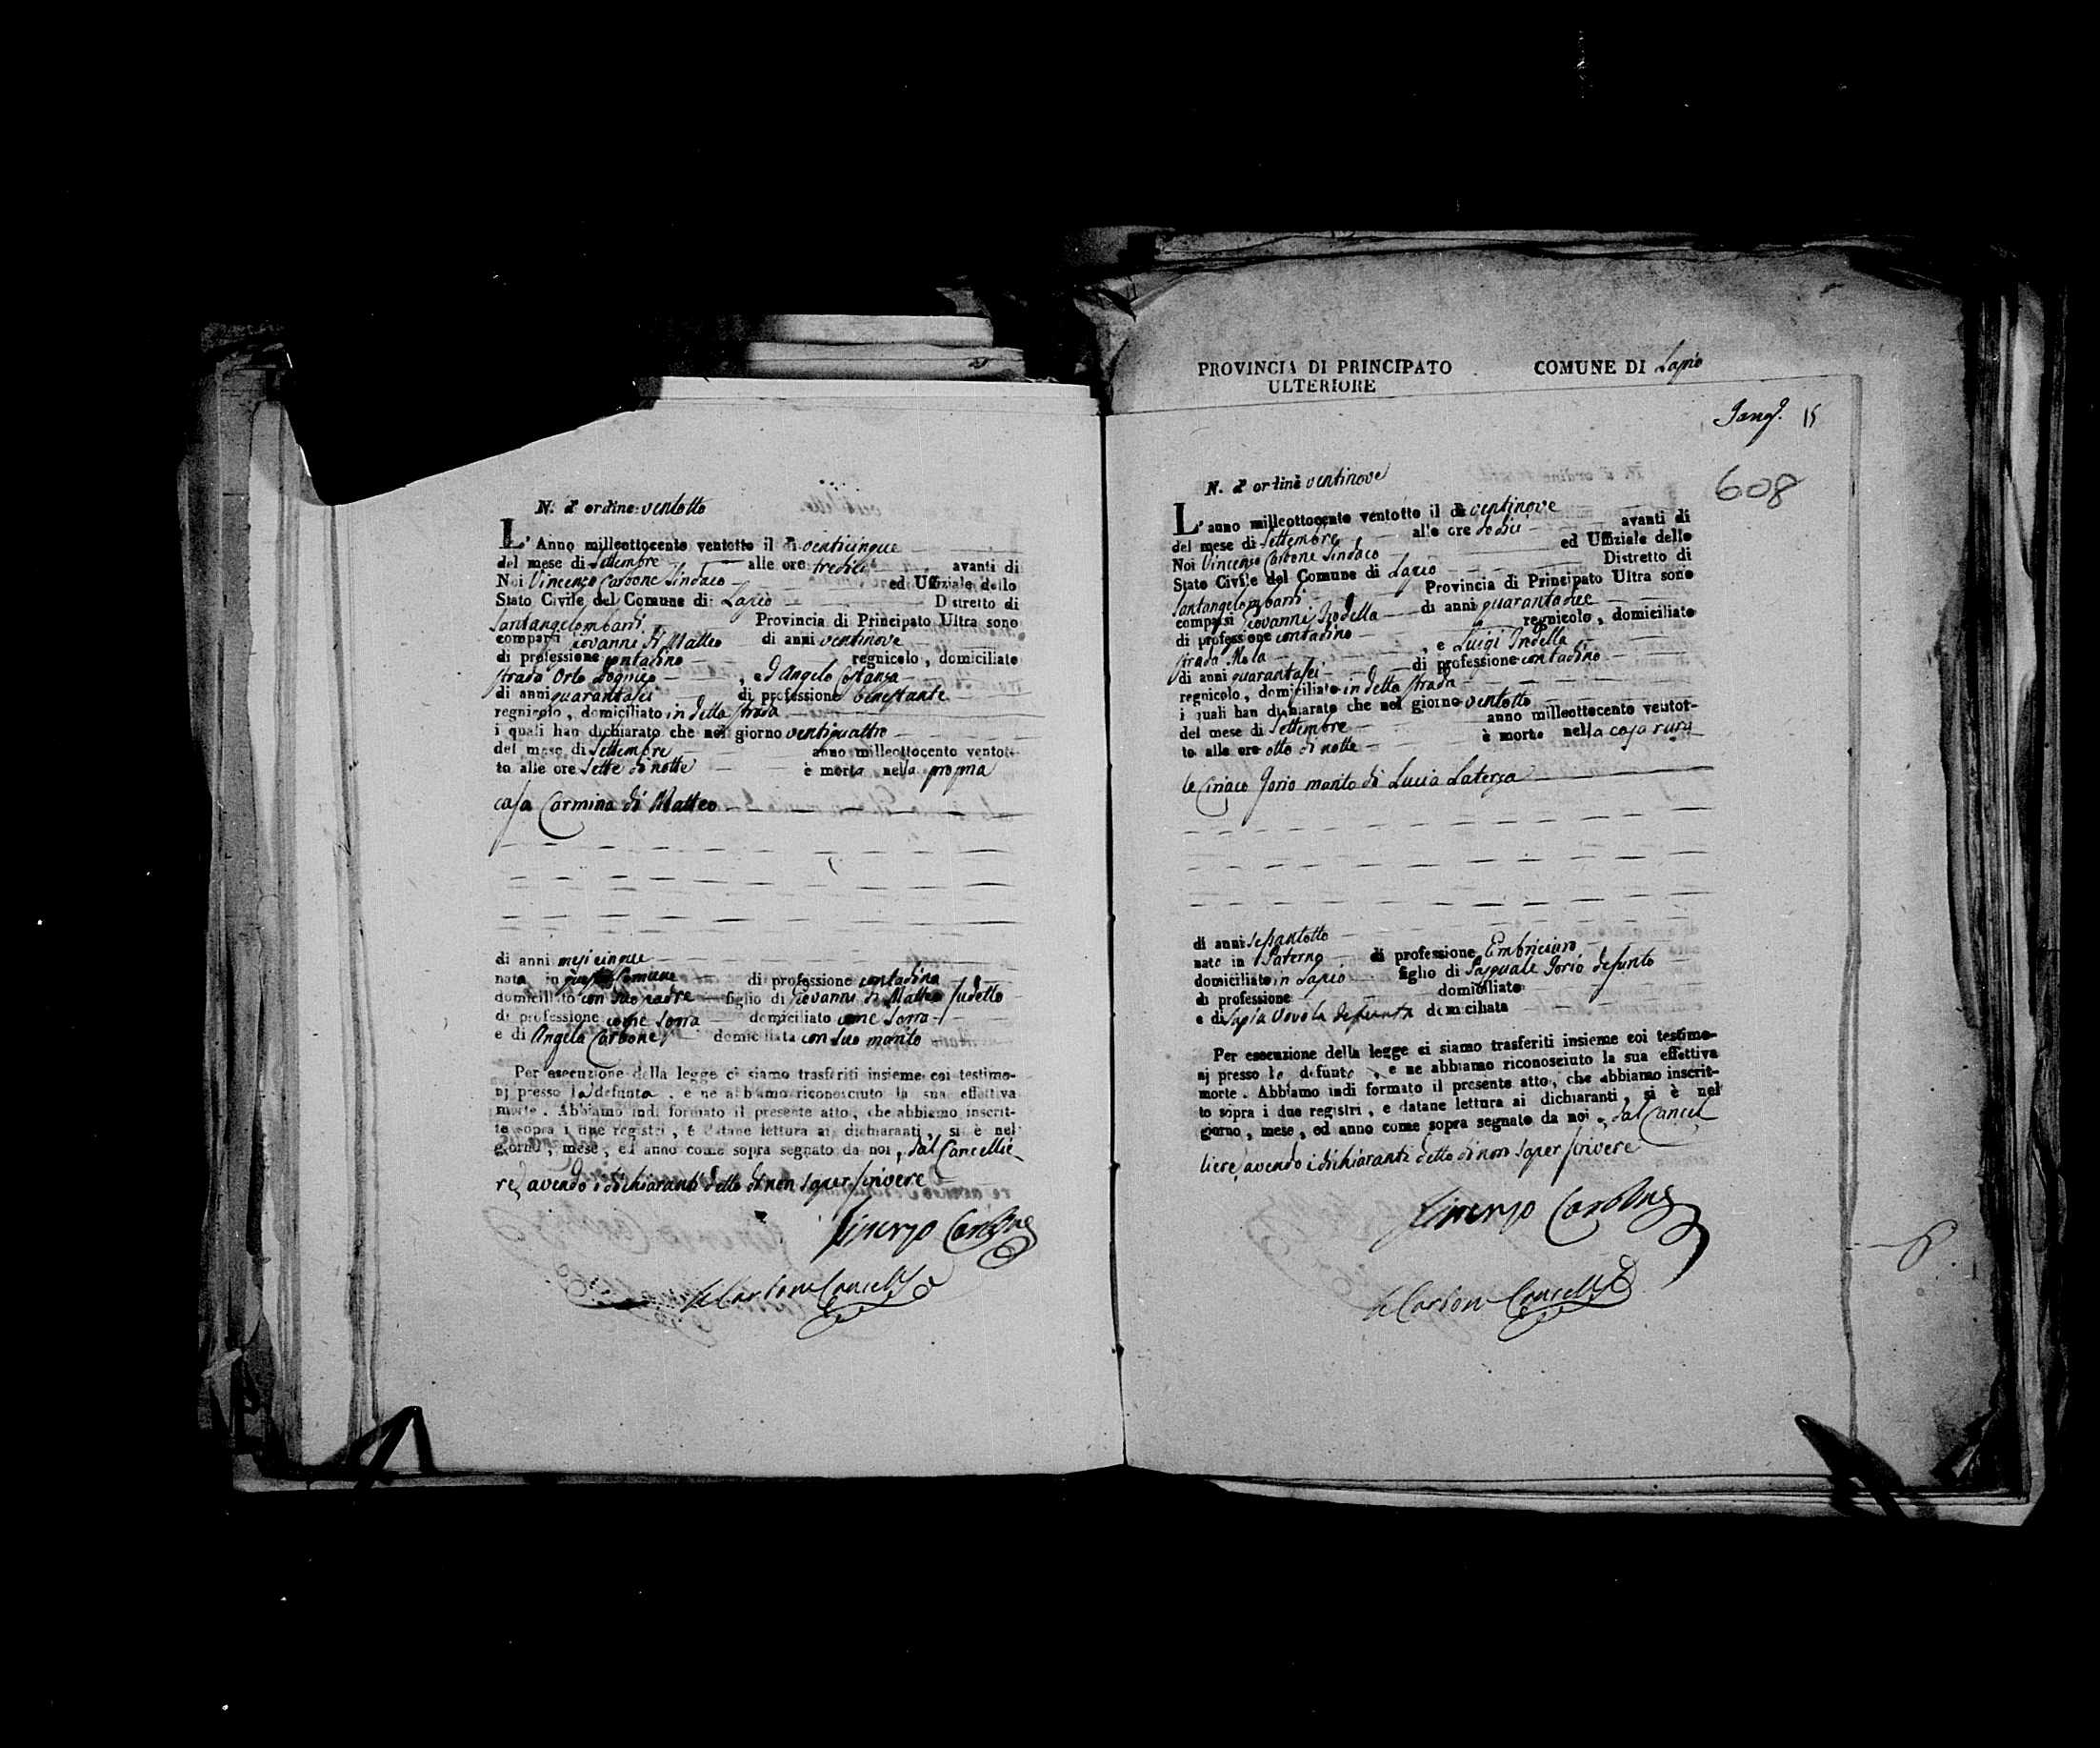 N. d' ordine ventotto
L'Anno milleottocento ventotto il dì venticinque
del mese di Settembre alle ore tredici avanti di
Noi Vincenzo Carbone Sindaco ed Uffiziale dello
Stato Civile del Comune di Lapio Distretto di
Santangelombardi Provincia di Principato Ultra sono
comparsi Giovanni di Matteo di anni ventinove
di professione contadino regnicolo, domiciliato
strada Orto , ed Angelo Costanza
di anni quarantasei di professione benestante
regnicolo, domiciliato in detta strada
i quali han dichiarato che nel giorno ventiquattro
del mese di Settembre anno milleottocento ventot-
to alle ore sette di notte è morta nella propria
casa Carmina di Matteo
di anni mesi cinque
nata in questo Comune di professione contadina
domiciliato con suo padre figlio di Giovanni di Matteo sudetto
di professione come sovra domiciliato come sovra
e di Angela Carbone domiciliata con suo marito
Per esecuzione della legge ci siamo trasferiti insieme coi testimo-
nj presso la defunta, e ne abbiamo riconosciuto la sua effettiva
morte. Abbiamo indi formato il presente atto, che abbiamo inscrit-
to sopra i due registri, e datane lettura ai dichiaranti, si è nel
giorno, mese, ed anno come sopra segnato da noi, dal Cancellie
re, avendo i dichiaranti detto di non saper scrivere
Vincenzo Carbone
Carbone Cancell.
PROVINCIA DI PRINCIPATO COMUNE DI Lapio
ULTERIORE
15
608
N. d' ordine ventinove
L'anno milleottocento ventotto il dì ventinove
del mese di Settembre alle ore dodici avanti di
Noi Vincenzo Carbone Sindaco ed Uffiziale dello
Stato Civile del Comune di Lapio Distretto di
Santangelombardi Provincia di Principato Ultra sono
comparsi Giovanni Trodella di anni quarantadue
di professione contadino regnicolo, domiciliato
strada Mola , e Luigi Trodella
di anni quarantasei di professione contadino
regnicolo, domiciliato in detta strada
i quali han dichiarato che nel giorno ventotto
del mese di Settembre anno milleottocento ventot-
to alle ore otto di notte è morto nella casa rura
le Ciriaco Jorio marito di Lucia Laterza
di anni sessantotto
nato in Paterno di professione Embriciaro
domiciliato in Lapio figlio di Pasquale Jorio defunto
di professione domiciliato
e di Sapia Vovola defunta domiciliata
Per esecuzione della legge ci siamo trasferiti insieme coi testimo-
nj presso lo defunto, e ne abbiamo riconosciuto la sua effettiva
morte. Abbiamo indi formato il presente atto, che abbiamo inscrit-
to sopra i due registri, e datane lettura ai dichiaranti, si è nel
giorno, mese, ed anno come sopra segnato da noi, dal Cancel
liere, avendo i dichiaranti detto di non saper scrivere
Vincenzo Carbone
Carbone Cancell.